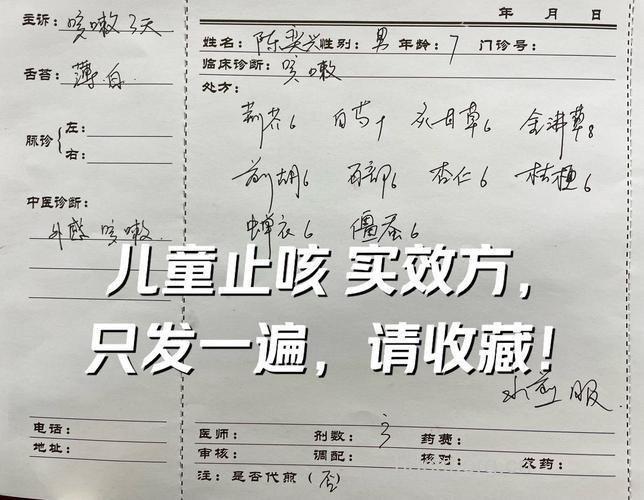 年 月 日
主诉：咳嗽3天
姓名：陈 兴 性别：男 年龄：7 门诊号：
舌苔：薄白
临床诊断：咳嗽
处方：
脉诊 左：
右：
荆芥6 白芍9 炙甘草6 金沸草8
前胡6 百部6 杏仁6 桔梗6
蝉衣6 僵蚕6
中医诊断：
外感 咳嗽
儿童止咳 实效方，
只发一遍，请收藏！
水煎服
电话：
地址：
医师： 剂数：3 药费：
审核： 调配： 核对： 发药：
注：是否代煎（否）